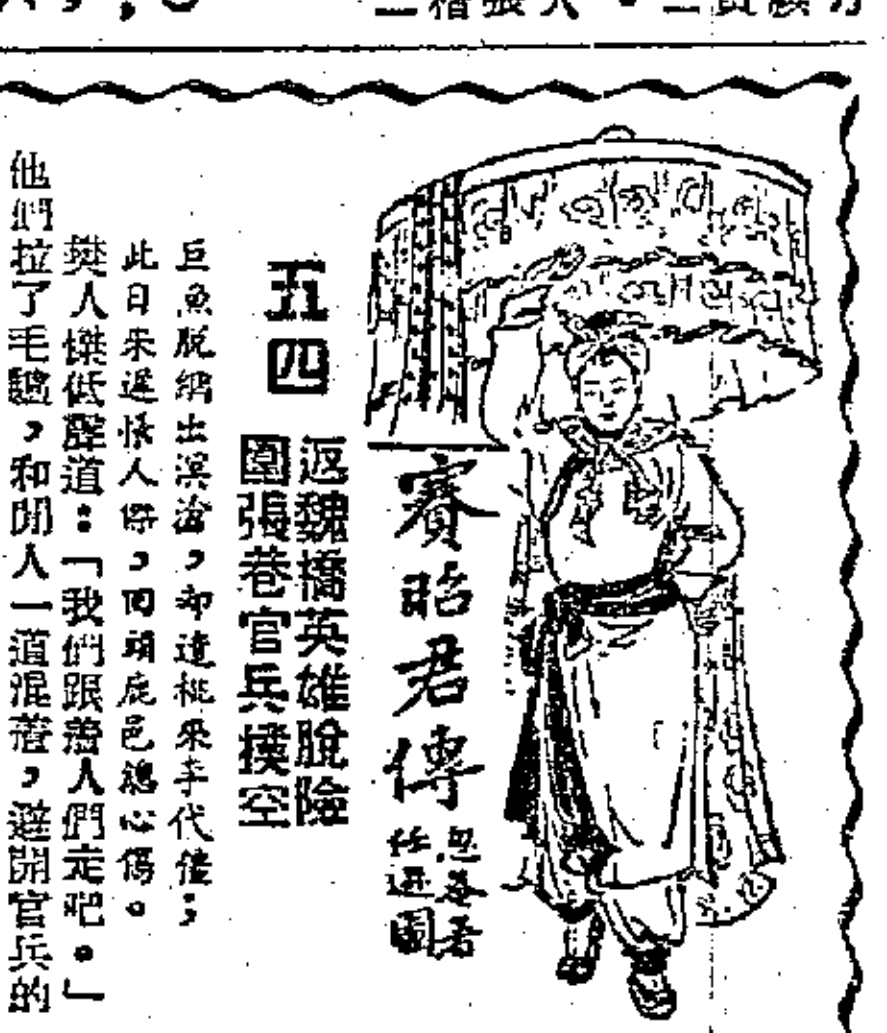 賽昭君傳
忽庵著
任迅圖
五四
返魏橋英雄脫險
圍張巷官兵撲空
巨魚脫網出溟滄，却遣桃來李代僵；
此日來遲悵人傑，回頭鹿邑總心傷。
樊人傑低聲道：「我們跟着人們走吧。」
他們拉了毛驢，和閒人一道混着，避開官兵的